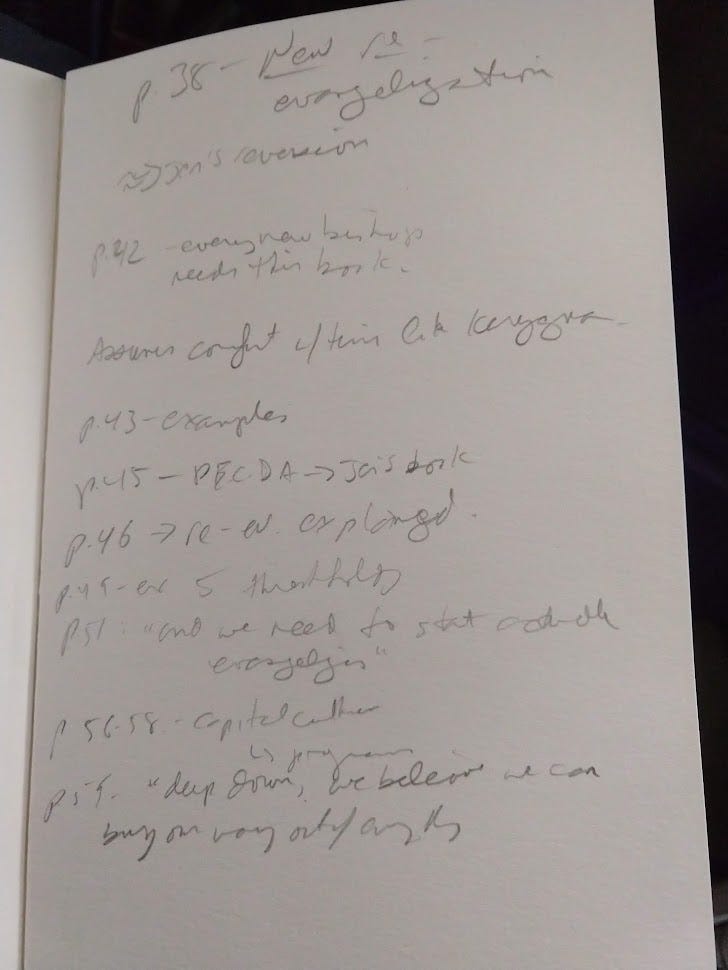 p.38 - New re-
evangelization
≈> Jen's reversion
p.42 - every new bishop
needs this book.
Assumes comfort w/ terms like kerygma
p.43 - examples
p.45 - → book
p.46 → re-ev. explained.
p.49 - ex 5 thresholds
p51: "and we need to start
p 56-58 - capital culture
↳ programs
p59. "deep down, we beleive we can
buy our way out of anything